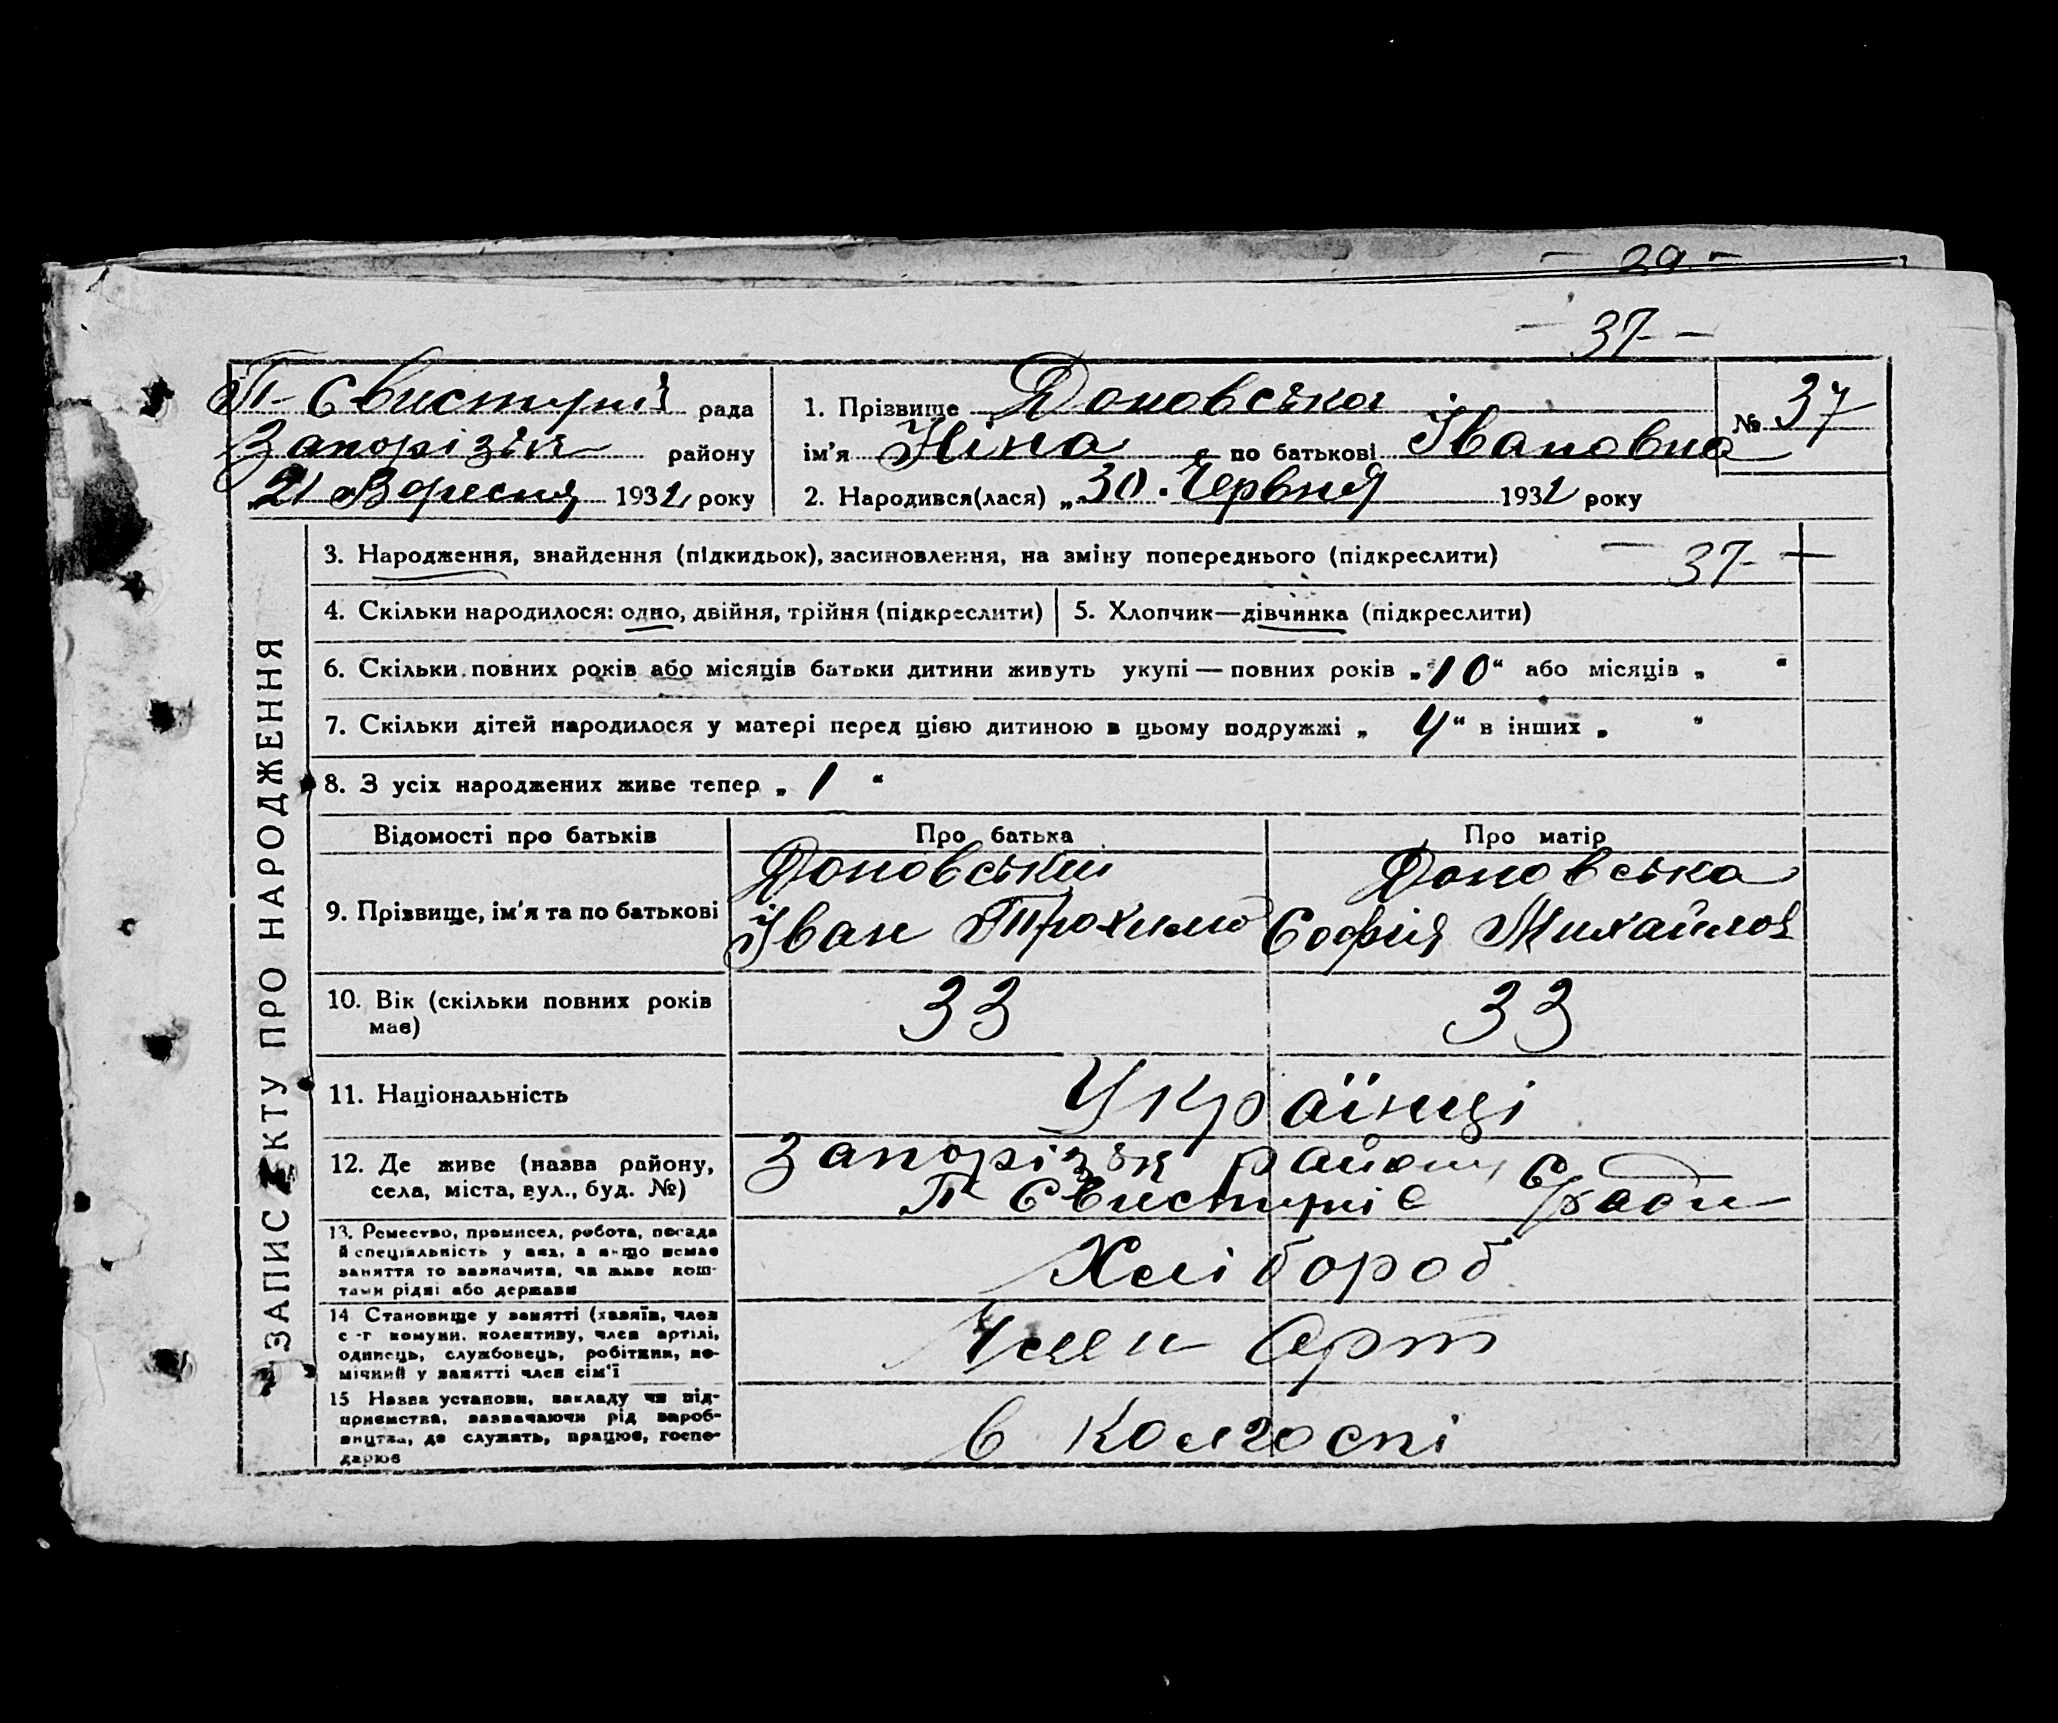 - 29 -
- 37 -
П- Свистунів рада
Запорізьк району
21 Вересня 1932 року
1. Прізвище Доновська
ім'я Ніна по батькові Івановна
№ 37
2. Народився(лася) „30 Червня 1932 року
ЗАПИС АКТУ ПРО НАРОДЖЕННЯ
3. Народження, знайдення (підкидьок), засиновлення, на зміну попереднього (підкреслити) - 37 -
4. Скільки народилося: одно, двійня, трійня (підкреслити) 5. Хлопчик—дівчинка (підкреслити)
6. Скільки повних років або місяців батьки дитини живуть укупі — повних років „10“ або місяців „ “
7. Скільки дітей народилося у матері перед цією дитиною в цьому подружжі „ 4“ в інших „ “
8. З усіх народжених живе тепер „ 1 “
Відомості про батьків Про батька Про матір
9. Прізвище, ім'я та по батькові
Доновський
Іван Трохимо
Доновська
Софія Михайлов
10. Вік (скільки повних років
має)
33 33
11. Національність Українці
12. Де живе (назва району,
села, міста, вул., буд. №)
Запорізьк району
С/ради
13. Ремество, промисел, робота, посада
й спеціяльність у них, а якщо немає
заняття то зазначити, чи живе кош-
тами рідні або держави
Хлібороб
14 Становище у занятті (хазяїн, член
с-г комуни, колективу, член артілі,
одинець, службовець, робітник, по-
мічний у занятті член сім'ї
Член Арт
15 Назва установи, закладу чи під-
приємства, зазначаючи рід вироб-
ництва, де служить, працює, госпо-
дарює
в колгоспі